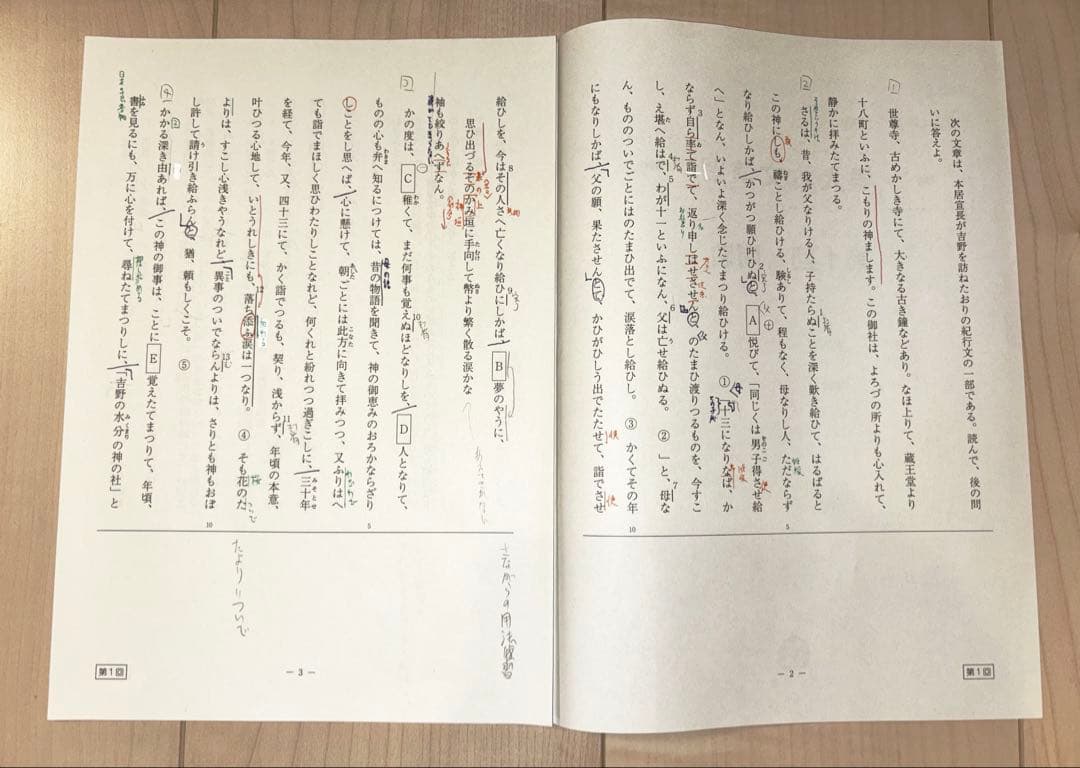 次の文章は、本居宣長が吉野を訪ねたおりの紀行文の一部である。読んで、後の問
いに答えよ。
1 世尊寺、古めかしき寺にて、大きなる古き鐘などあり。なほ上りて、蔵王堂より
十八町といふに、こもりの神まします。この御社は、よろづの所よりも心入れて、
静かに拝みたてまつる。
2 さるは、昔、我が父なりける人、子持たらぬことを深く歎き給ひて、はるばると
この神にしも、禱ことし給ひける、験ありて、程もなく、母なりし人、ただならず
なり給ひしかば、かつがつ願ひ叶ひぬと、A悦びて、「同じくは男子得させ給
へ」となん、いよいよ深く念じたてまつり給ひける。①十三になりなば、か
ならず自ら率て詣でて、返り申しはせさせんとのたまひ渡りつるものを、今すこ
し、え堪へ給はで、わが十一といふになん、父は亡せ給ひぬる。②」と、母な
ん、もののついでごとにはのたまひ出でて、涙落とし給ひし。③かくてその年
にもなりしかば、父の願、果たさせんとて、かひがひしう出でたたせて、詣でさせ
5
10
第1回
― 2 ―
給ひしを、今はその人さへ亡くなり給ひにしかば、B夢のやうに、
思ひ出づるそのかみ垣に手向して幣より繁く散る涙かな
袖も絞りあへずなん。
3 かの度は、C稚くて、まだ何事も覚えぬほどなりしを、D人となりて、
ものの心も弁へ知るにつけては、昔の物語を聞きて、神の御恵みのおろかならざり
しことをし思へば、心に懸けて、朝ごとには此方に向きて拝みつつ、又ふりはへ
ても詣でまほしく思ひわたりしことなれど、何くれと紛れつつ過ぎこしに、三十年
を経て、今年、又、四十三にて、かく詣でつるも、契り、浅からず、年頃の本意、
叶ひつる心地して、いとうれしきにも、落ち添ふ涙は一つなり。④そも花のた
よりは、すこし心浅きやうなれど、異事のついでならんよりは、さりとも神もおぼ
し許して請け引き給ふらんと、猶、頼もしくこそ。⑤
4 かかる深き由あれば、この神の御事は、ことにE覚えたてまつりて、年頃、
書を見るにも、万に心を付けて、尋ねたてまつりしに、「吉野の水分の神の社」と
5
10
さながらの用法復習
たより＝ついで
第1回
― 3 ―